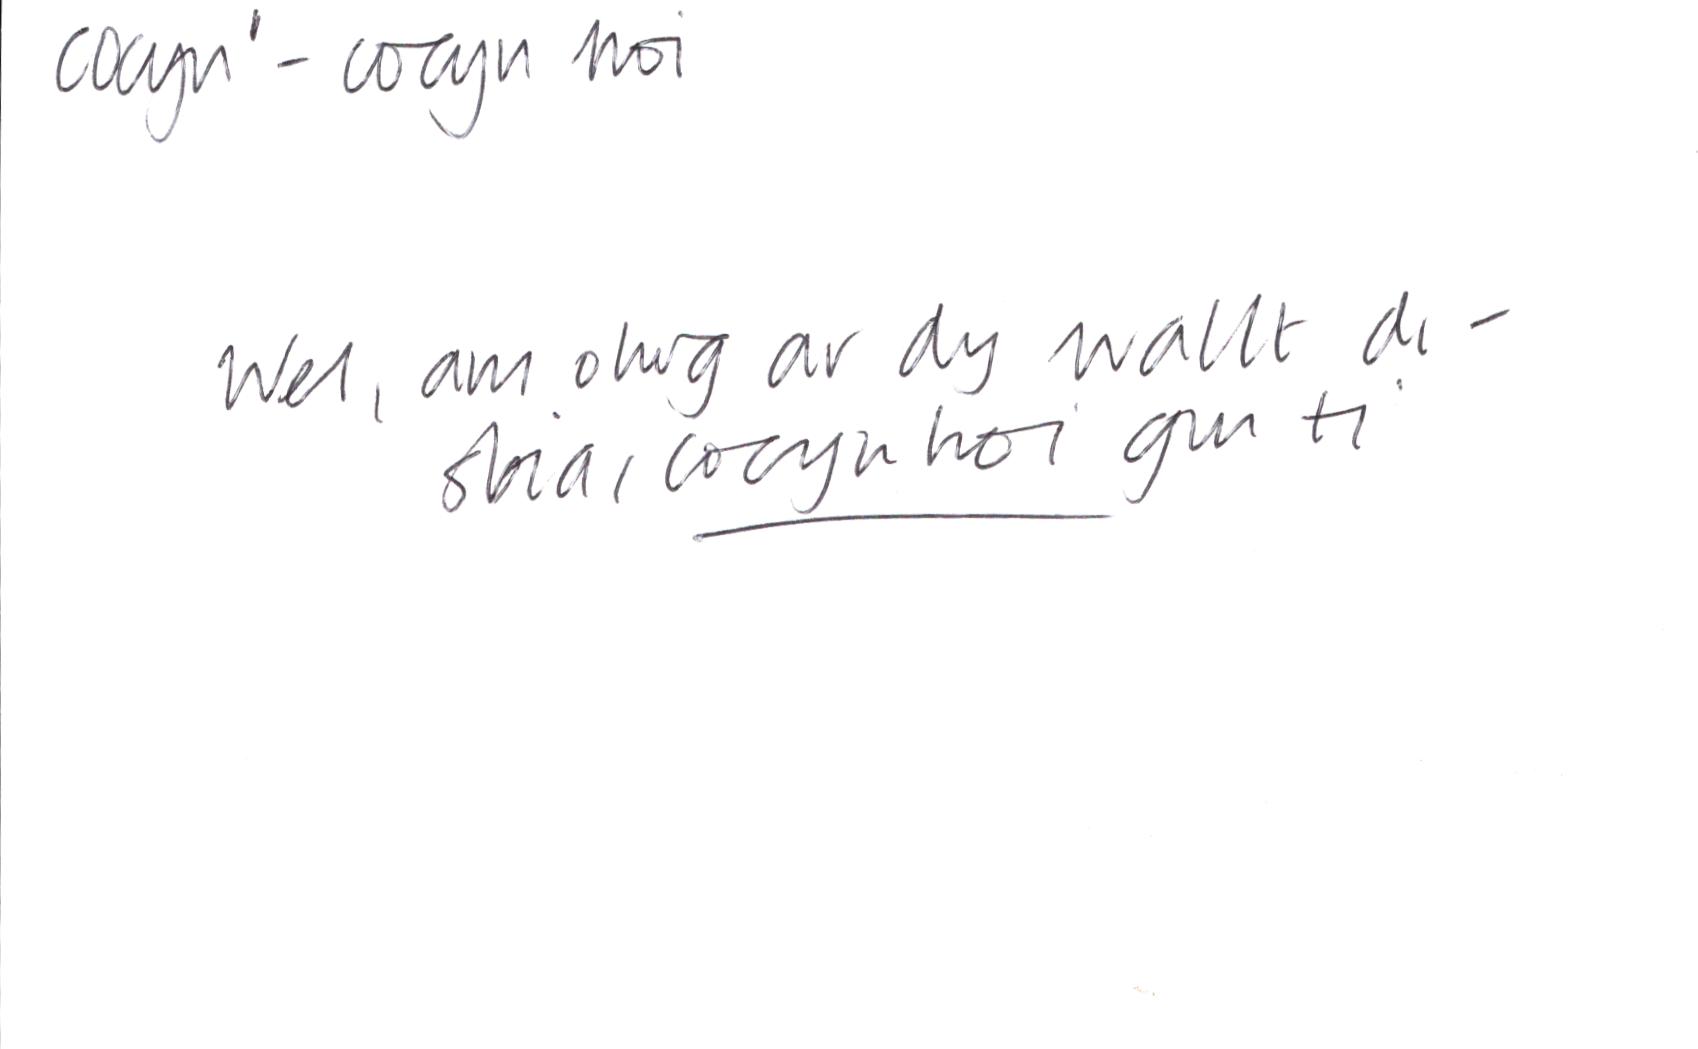 cocyn' - cocyn hoi
Wel, am olwg ar dy wallt di -
sbia, cocyn hoi gun ti